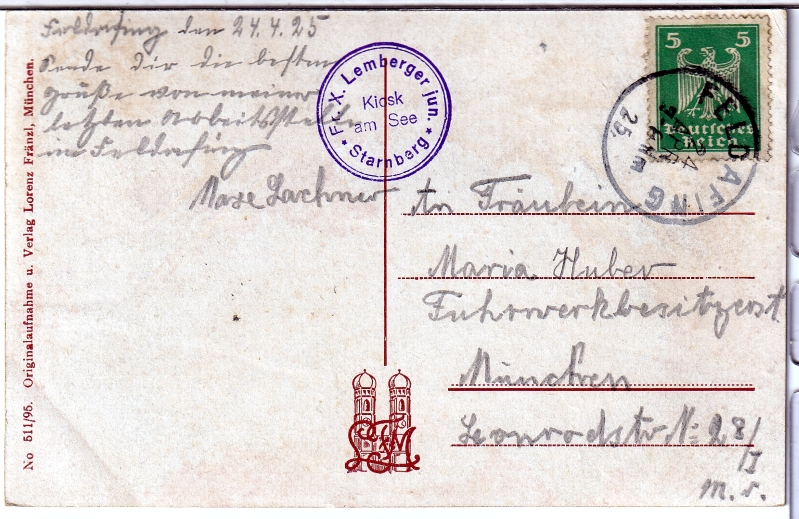 Feldafing den 24.4.25
Sende dir die besten
Grüße von meiner
letzten Arbeitsstelle
in Feldafing
Maxe Lachner
Fr. X. Lemberger jun.
Kiosk
am See
* Starnberg *
5 5
Deutsches
Reich
FELDAFING
25.
An Fräulein
Maria Huber
Fuhrwerkbesitzerst
München
Leonrodstr. N: 28/
II
m. r.
No 511/95. Originalaufnahme u. Verlag Lorenz Fränzl, München.